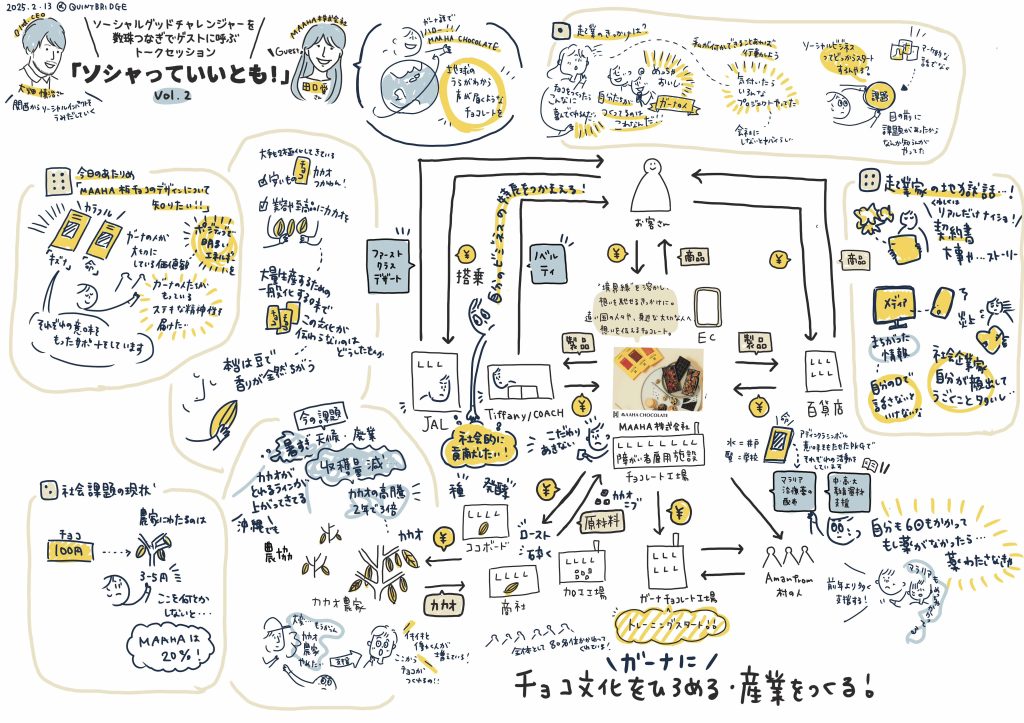 2025.2.13 @ QUINTBRIDGE
ソーシャルグッドチャレンジャーを
数珠つなぎでゲストに呼ぶ
トークセッション
「ソシャっていいとも！」
Vol.2
関西からソーシャルインパクトを
うみだしていく
MAAHA株式会社
Guest
田口愛
さん
ガーナ語で
ハロー!!
MAAHA CHOCOLATE
地球の
うらがわから
声が届くような
チョコレートを
起業のきっかけは？
チョコをつくったら
こんなに
喜んでくれるんだ。
めっちゃ
おいしい
自分たちが
つくってるのは
これなんだ!!
ガーナの人
気付いたら
いろんな
プロジェクトやってた
会社に
しないとヤバいらしい
ソーシャルビジネス
ってどっからスタート
するんやろ？
課題
目の前に
課題があったから
なんか知らんが
やってた
今日のあたりめ
「MAAHA板チョコのデザインについて
知りたい!!」
カラフル
「キズナ」
「命」
ガーナの人が
大切に
している価値観
ポジティブで
明るい
エネルギーを
ガーナの人たちが
もっている
ステキな精神性を
届けたい
それぞれの意味を
もったサポートをしています
大手も2極化してきている
安いもの
チョコ
カカオ
つかわん！
美容や至高品にカカオを
大量生産するための
一般化する味で
この文化が
伝わらないのは
どうしたものか
本当は豆で
香りが全然ちがう
自分のビジネスの特長をつかえる！
ファースト
クラス
デザート
搭乗
ノベル
ティ
お客さん
商品
商品
"境界線"を溶かし、
想いを馳せるきっかけに。
遠い国の人々や、身近な大切な人へ
想いを伝えるチョコレート。
EC
製品
製品
JAL
Tiffany/COACH
百貨店
MAAHA CHOCOLATE
MAAHA株式会社
障がい者雇用施設
チョコレート工場
社会的に
貢献したい！
こだわり
あきない
起業家の地獄話…！
くわしくは
リアルだけナイショ！
契約書
大事やーストーリー
メディア
炎上
まちがった
情報
自分の口で
話さないと
いけないな
社会企業家
自分が顔出して
うごくこと多いし…
今の課題
暑さ 天候・廃業
収穫量減
カカオが
とれるラインが
上がってきてる
カカオの高騰
2年で3倍
沖縄でも
農協
カカオ
カカオ農家
種
発酵
ココボード
商社
カカオ
ロースト
砕く
加工工場
カカオ
ニブ
原材料
ガーナチョコレート工場
トレーニングスタート!!
水＝井戸
賢＝学校
命
アディンクラシンボル
意味をもたせたPKGで
それぞれの活動を
しています
マラリア
治療薬の
配布
中・高・大
教育資料
支援
Amanfrom
村の人
前年より多く
支援する！
自分も6回もかかって
もし薬がなかったら…
薬わたさなきゃ
社会課題の現状
農家にわたるのは
チョコ
100円
3-5円
ここを何とか
しないと…
MAAHAは
20%！
カカオ
農家
ここから
チョコが
つくれるの!!
全体として80名位かかわって
くれている！
ガーナに
チョコ文化をひろめる・産業をつくる！